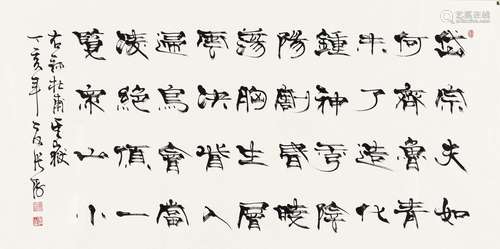 岱宗夫如
何齊魯青
未了造化
鍾神秀陰
陽割昏曉
蕩胸生層
雲決眥入
歸鳥會當
凌絕頂一
覽衆山小
右錄杜甫望嶽
丁亥年